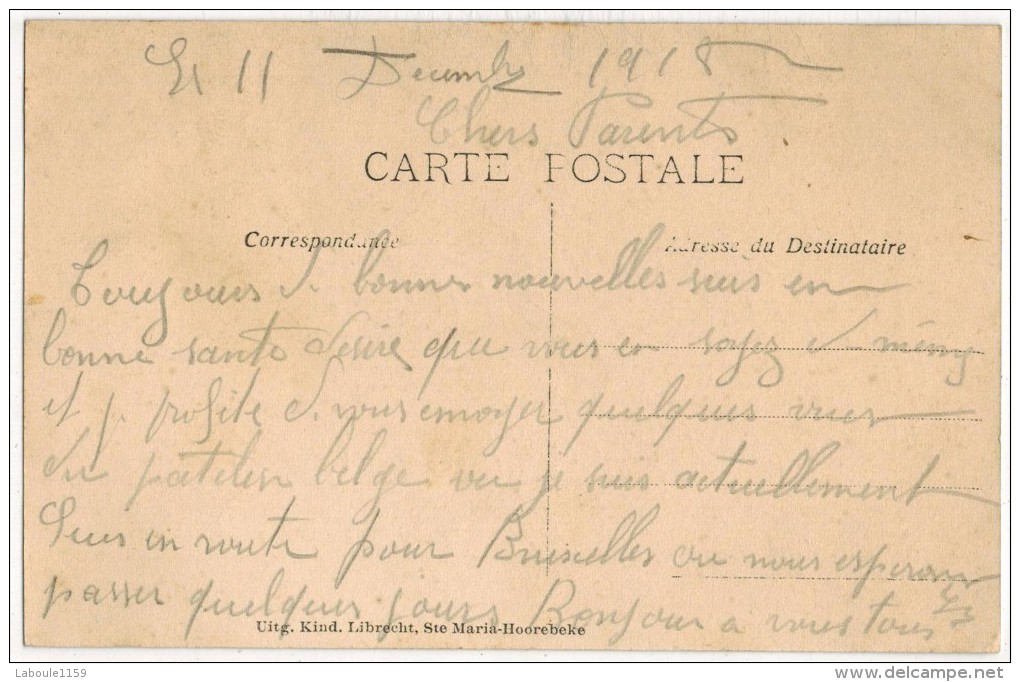 Le 11 Decembre 1918
Chers Parents
CARTE POSTALE
Correspondance
Adresse du Destinataire
Toujours d. bonnes nouvelles suis en
bonne sante desire que vous en soyez d. même
et j. profite d. vous envoyer quelques vues
du patelin belge ou je suis actuellement
Suis en route pour Bruxelles ou nous esperons
passer quelques jours Bonjour a vous tous
Uitg. Kind. Librecht, Ste Maria-Hoorebeke
Laboule1159
www.delcampe.net